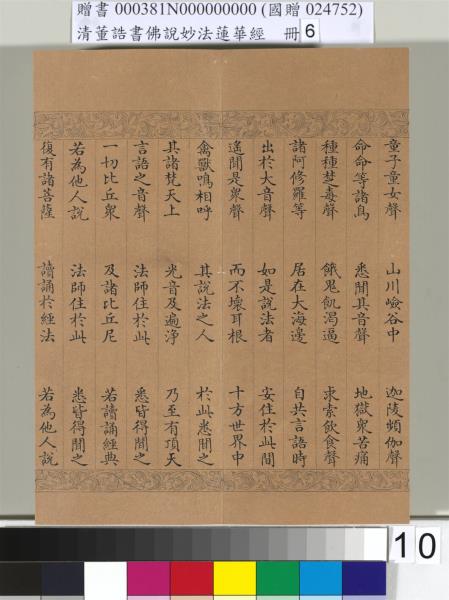 贈書 000381N000000000 (國贈 024752)
清董誥書佛說妙法蓮華經 冊 6
童子童女聲 山川嶮谷中 迦陵頻伽聲
命命等諸鳥 悉聞其音聲 地獄衆苦痛
種種楚毒聲 餓鬼飢渴逼 求索飲食聲
諸阿修羅等 居在大海邊 自共言語時
出於大音聲 如是說法者 安住於此間
遙聞是衆聲 而不壞耳根 十方世界中
禽獸鳴相呼 其說法之人 於此悉聞之
其諸梵天上 光音及遍淨 乃至有頂天
言語之音聲 法師住於此 悉皆得聞之
一切比丘衆 及諸比丘尼 若讀誦經典
若為他人說 法師住於此 悉皆得聞之
復有諸菩薩 讀誦於經法 若為他人說
10